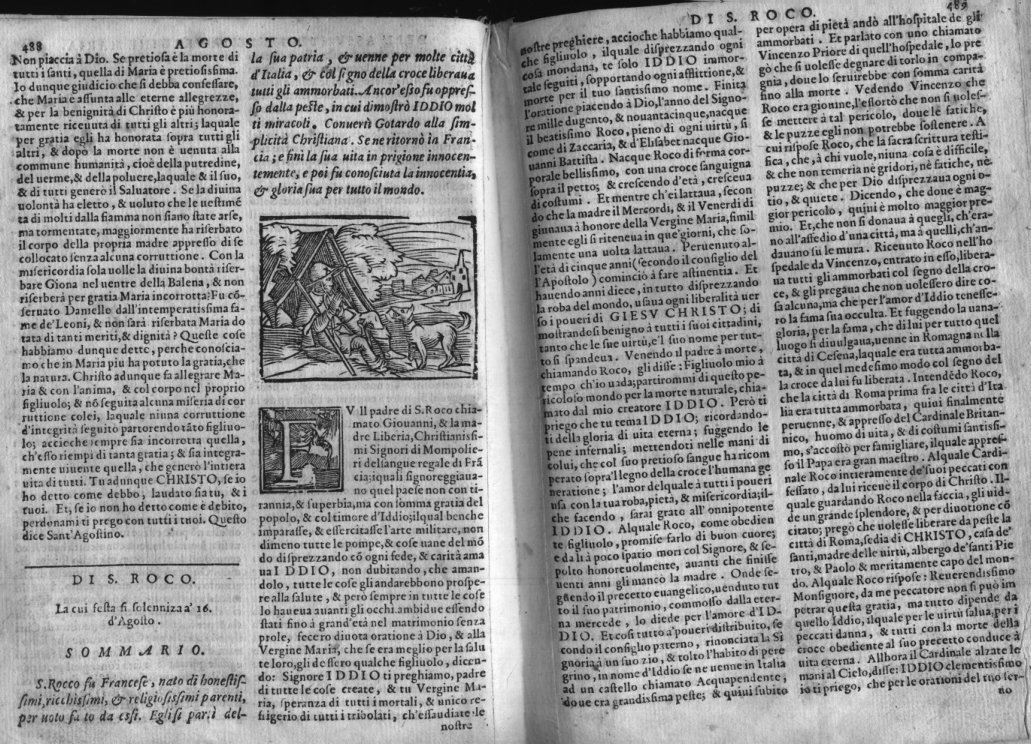 488
AGOSTO.
Non piaccia à Dio. Se pretiosa è la morte di
tutti i santi, quella di Maria è pretiosissima.
Io dunque giudicio che si debba confessare,
che Maria è assunta alle eterne allegrezze,
& per la benignità di Christo è più honora-
tamente riceuuta di tutti gli altri; laquale
per gratia egli ha honorata sopra tutti gli
altri, & dopo la morte non è uenuta alla
comune humanità, cioè della putredine,
del uerme, & della poluere, laquale & il suo,
& di tutti generò il Saluatore. Se la diuina
uolontà ha eletto, & uoluto che le uestimē
ta di molti dalla fiamma non siano state arse,
ma tormentate, maggiormente ha riserbato
il corpo della propria madre appresso di se
collocato senza alcuna corruttione. Con la
misericordia sola uolle la diuina bontà riser-
bare Giona nel uentre della Balena, & non
riserberà per gratia Maria incorrotta? Fu cō-
seruato Daniello dall'intemperatissima fa-
me de'Leoni, & non sarà riserbata Maria do
tata di tanti meriti, & dignità? Queste cose
habbiamo dunque dette, perche conoscia-
mo che in Maria piu ha potuto la gratia, che
la natura. Christo adunque fa allegrare Ma-
ria & con l'anima, & col corpo nel proprio
figliuolo; & nō seguita alcuna miseria di cor
ruttione colei, laquale niuna corruttione
d'integrità seguito partorendo tāto figliuo-
lo; accioche sempre sia incorrotta quella,
ch'esso riempi di tanta gratia; & sia integra-
mente uiuente quella, che generò l'intiera
uita di tutti. Tu adunque CHRISTO, se io
ho detto come debbo, laudato sia tu, & i
tuoi. Et, se io non ho detto come è debito,
perdonami ti prego con tutti i tuoi. Questo
dice Sant'Agostino.
DI S. ROCO.
La cui festa si solenniza a' 16.
d'Agosto.
SOMMARIO.
S. Rocco fu Francese, nato di honestis
simi, ricchissimi, & religiosissimi parenti,
per uoto fatto da essi. Egli si partì del-
la sua patria, & uenne per molte città
d'Italia, & col segno della croce liberaua
tutti gli ammorbati. Ancor'esso fu oppres-
so dalla peste, in cui dimostrò IDDIO mol
ti miracoli. Conuertì Gotardo alla sim-
plicità Christiana. Se ne ritornò in Fran-
cia; e finì la sua uita in prigione innocen-
temente, e poi fu conosciuta la innocentia,
& gloria sua per tutto il mondo.
FV Il padre di S. Roco chia-
mato Giouanni, & la ma-
dre Liberia, Christianissi-
mi Signori di Mompolie-
ri del sangue regale di Frā
cia: iquali signoreggiaua-
no quel paese non con ti-
rannia, & superbia, ma con somma gratia del
popolo, & col timore d'Iddio, ilqual benche
imparasse, & essercitasse l'arte militare, non
dimeno tutte le pompe, & cose uane del mō
do disprezzando cō ogni sede, & carità ama
ua IDDIO, non dubitando, che aman-
dolo, tutte le cose gli andarebbono prospe-
re alla salute, & però sempre in tutte le cose
lo haueua auanti gli occhi. ambidue essendo
stati fino à grand'età nel matrimonio senza
prole, fecero diuota oratione à Dio, & alla
Vergine Maria, che se era meglio per la salu
te loro, gli dessero qualche figliuolo, dicen-
do: Signore IDDIO ti preghiamo, padre
di tutte le cose create, & tu Vergine Ma-
ria, speranza di tutti i mortali, & unico re-
frigerio di tutti i tribolati, ch'essaudiate le
nostre
DI S. ROCO.
489
nostre preghiere, accioche habbiamo qual-
che figliuolo, ilquale disprezzando ogni
cosa mondana, te solo IDDIO immor-
tale seguiti, sopportando ogni afflittione, &
morte per il tuo santissimo nome. Finita
l'oratione piacendo à Dio, l'anno del Signo-
re mille dugento, & nouantacinque, nacque
il beatissimo Roco, pieno di ogni uirtù, si
come di Zaccaria, & d'Elisabet nacque Gio-
uanni Battista. Nacque Roco di forma cor-
porale bellissimo, con una croce sanguigna
sopra il petto; & crescendo d'età, cresceua
di costumi. Et mentre ch'ei lattaua, secon
do che la madre il Mercordì, & il Venerdì di
giunaua à honore della Vergine Maria, simil
mente egli si riteneua in que'giorni, che so-
lamente una uolta lattaua. Peruenuto al-
l'età di cinque anni (secondo il consiglio del
l'Apostolo) cominciò à fare astinentia. Et
hauendo anni diece, in tutto disprezzando
la roba del mondo, usaua ogni liberalità uer
so i poueri di GIESV CHRISTO; di
mostrandosi benigno à tutti i suoi cittadini,
tanto che le sue uirtù, e'l suo nome per tut-
to si spandeua. Venendo il padre à morte,
chiamando Roco, gli disse: Figliuolo mio à
tempo ch'io uada; partirommi di questo pe-
ricoloso mondo per la morte naturale, chia-
mato dal mio creatore IDDIO. Però ti
priego che tu tema IDDIO; ricordando-
ti della gloria di uita eterna; fuggendo le
pene infernali; mettendoti nelle mani di
colui, che col suo pretioso sangue ha ricom
perato sopra'l legno della croce l'humana ge
neratione; l'amor delquale à tutti i poueri
usa con la tua roba, pietà, & misericordia; il-
che facendo, sarai grato all'onnipotente
IDDIO. Alquale Roco, come obedien
te figliuolo, promise farlo di buon cuore;
e da lì à poco spatio morì col Signore, & se-
polto honoreuolmente, auanti che finisse
uenti anni gli mancò la madre. Onde se-
guendo il precetto euangelico, uenduto tut
to il suo patrimonio, commosso dalla eter-
na mercede, lo diede per l'amor d'ID-
DIO. Et così tutto a' poueri distribuito, se
condo il consiglio paterno, rinonciata la Si
gnoria à un suo zio, & tolto l'habito di pere
grino, in nome d'Iddio se ne uenne in Italia
ad un castello chiamato Acquapendente,
doue era grandissima peste; & quiui subito
per opera di pietà andò all'hospitale de gli
ammorbati. Et parlato con uno chiamato
Vincenzo Priore di quell'hospedale, lo pre
gò che si uolesse degnare di torlo in compa-
gnia, doue lo seruirebbe con somma carità
fino alla morte. Vedendo Vincenzo che
Roco era gionine, l'essortò che non si uoles-
se mettere à tal pericolo, doue le fatiche,
& le puzze egli non potrebbe sostenere. A
cui rispose Roco, che la sacra scrittura testi-
fica, che, à chi vuole, niuna cosa è difficile,
& che non temeria nè gridori, nè fatiche, nè
puzze; & che per Dio disprezzaua ogni o-
tio, & quiete. Dicendo, che doue è mag-
gior pericolo, quiui è molto maggior pre-
mio. Et, che non si donaua à quegli, ch'era-
no all'assedio d'una città, ma à quelli, ch'an-
dauano su le mura. Riceuuto Roco nell'ho
spedale da Vincenzo, entrato in esso, libera-
ua tutti gli ammorbati col segno della cro-
ce, & gli pregaua che non uolessero dire co-
sa alcuna, ma che per l'amor d'Iddio tenesse-
ro la fama sua occulta. Et fuggendo la uana-
gloria, per la fama, che di lui per tutto quel
luogo si diuulgaua, uenne in Romagna nella
città di Cesena, laquale era tutta ammorba-
ta, & in quel medesimo modo col segno del
la croce da lui fu liberata. Intendēdo Roco,
che la città di Roma prima fra le città d'Ita
lia era tutta ammorbata, quiui finalmente
peruenne, & appresso del Cardinale Britan-
nico, huomo di uita, & di costumi santissi-
mo, s'accostò per famigliare, ilquale appres-
so il Papa era gran maestro. Alquale Cardi-
nale Roco intieramente de' suoi peccati con
fessato, da lui riceuè il corpo di Christo. Il-
quale guardando Roco nella faccia, gli uid-
de un grande splendore, & per diuotione cō
citato; pregò che uolesse liberare da peste la
città di Roma, sedia di CHRISTO, casa de'
santi, madre delle uirtù, albergo de' santi Pie
tro, & Paolo & meritamente capo del mon-
do. Alquale Roco rispose: Reuerendissimo
Monsignore, da me peccatore non si può im
petrar questa gratia, ma tutto dipende da
quello Iddio, ilquale per le uirtù salua, per i
peccati danna, & tutti con la morte della
croce obediente al suo precetto conduce à
uita eterna. Allhora il Cardinale alzate le
mani al Cielo, disse: IDDIO clementissimo
io ti priego, che per le orationi del tuo ser-
no